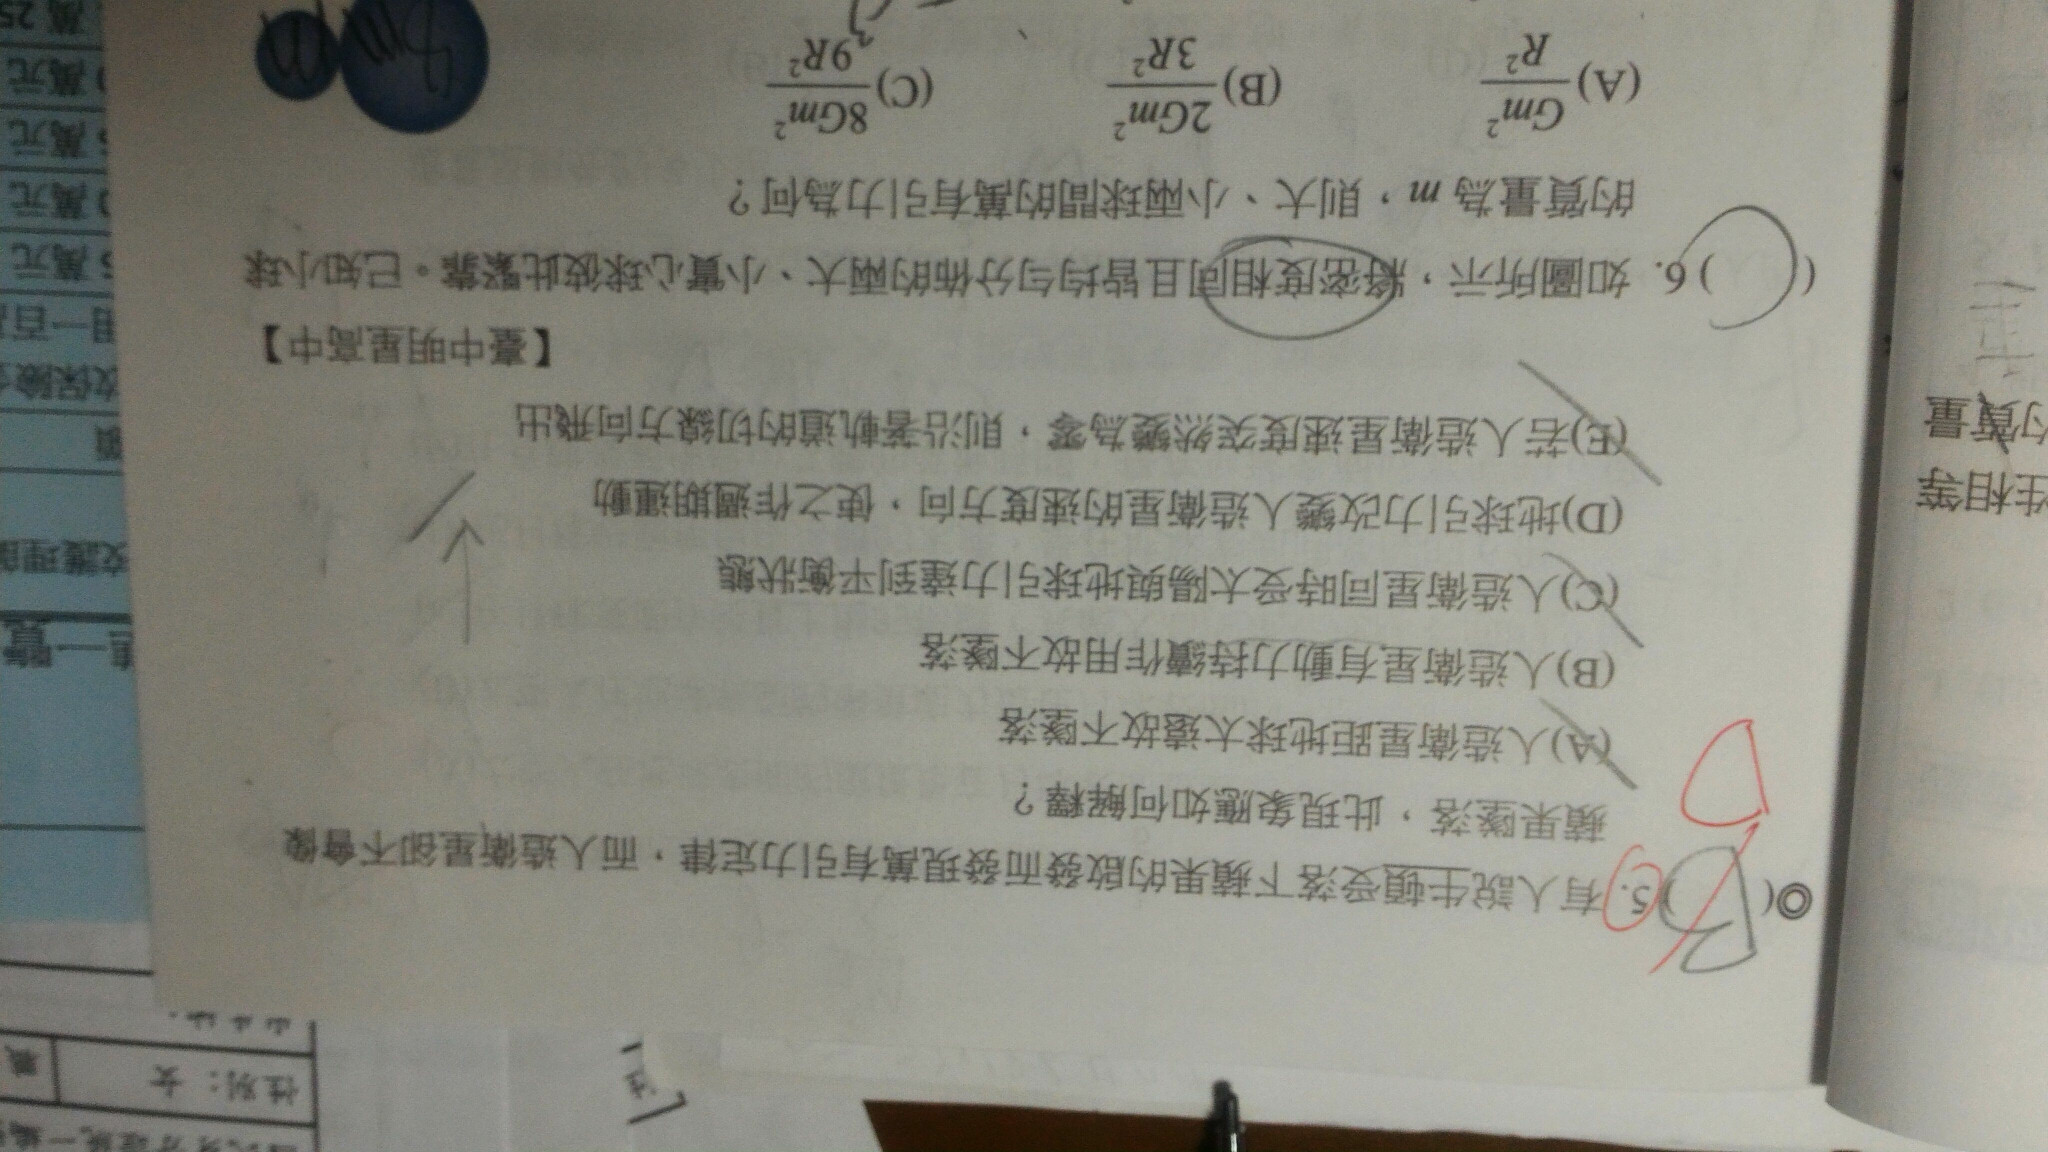 ◎( ) 5. 有人說牛頓受落下蘋果的啟發而發現萬有引力定律，而人造衛星卻不會像
蘋果墜落，此現象應如何解釋？
(A)人造衛星距地球太遠故不墜落
(B)人造衛星有動力持續作用故不墜落
(C)人造衛星同時受太陽與地球引力達到平衡狀態
(D)地球引力改變人造衛星的速度方向，使之作週期運動
(E)若人造衛星速度突然變為零，則沿著軌道的切線方向飛出
【臺中明星高中】
( ) 6. 如圖所示，將密度相同且皆均勻分佈的兩大、小實心球彼此緊靠。已知小球
的質量為 m，則大、小兩球間的萬有引力為何？
(A) Gm²/R² (B) 2Gm²/3R² (C) 8Gm²/9R²
8m m
D
性別：女
的質量
性相等
萬元
萬元
萬元
萬元